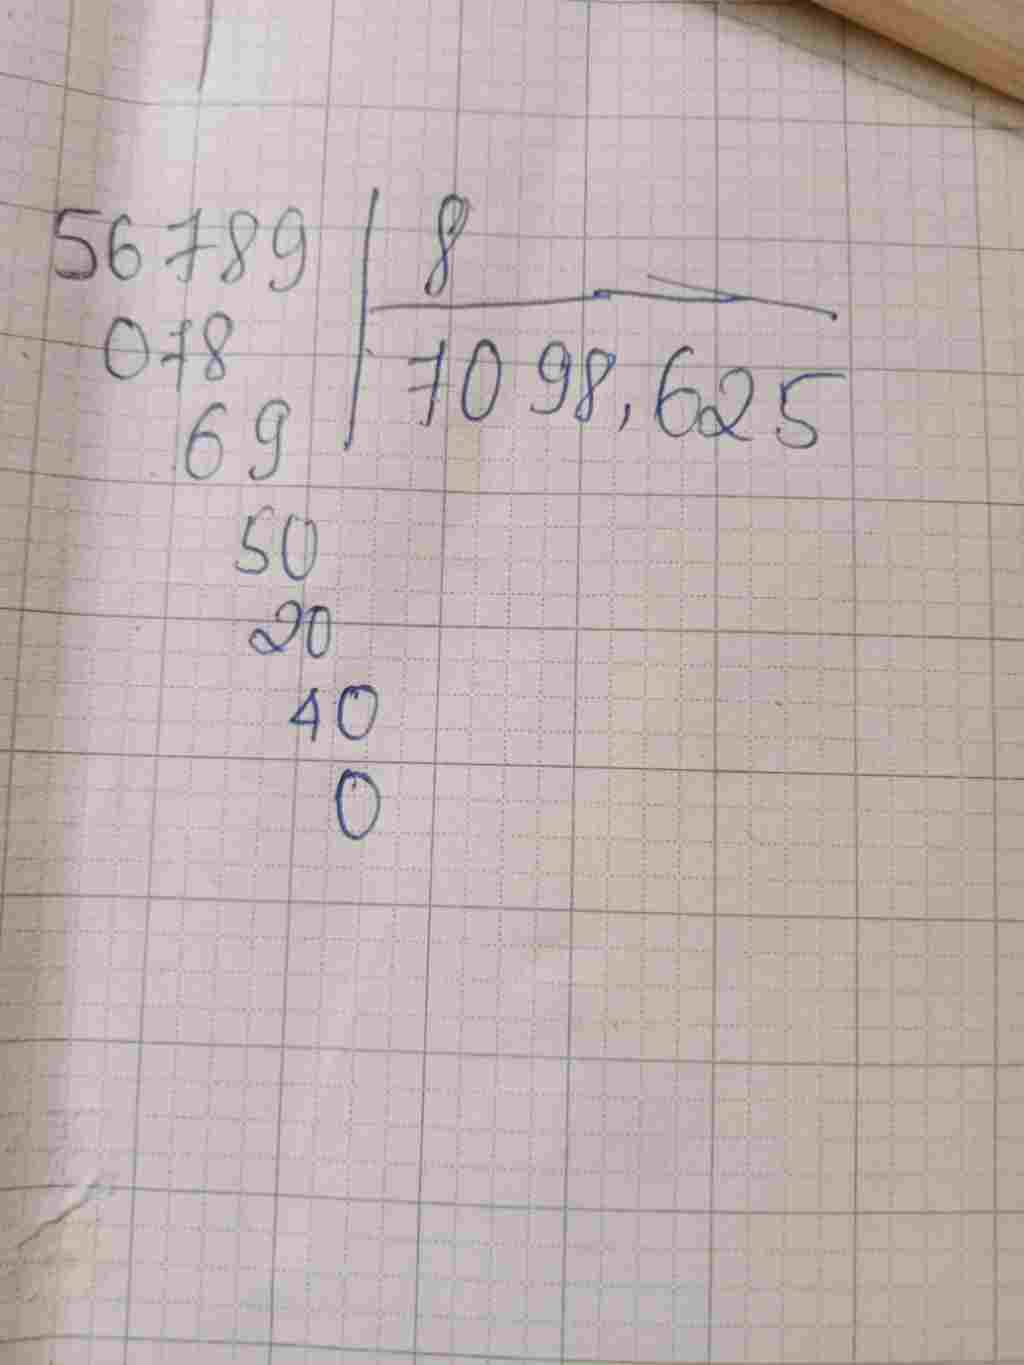 56789 | 8
078 | 7098,625
69
50
20
40
0